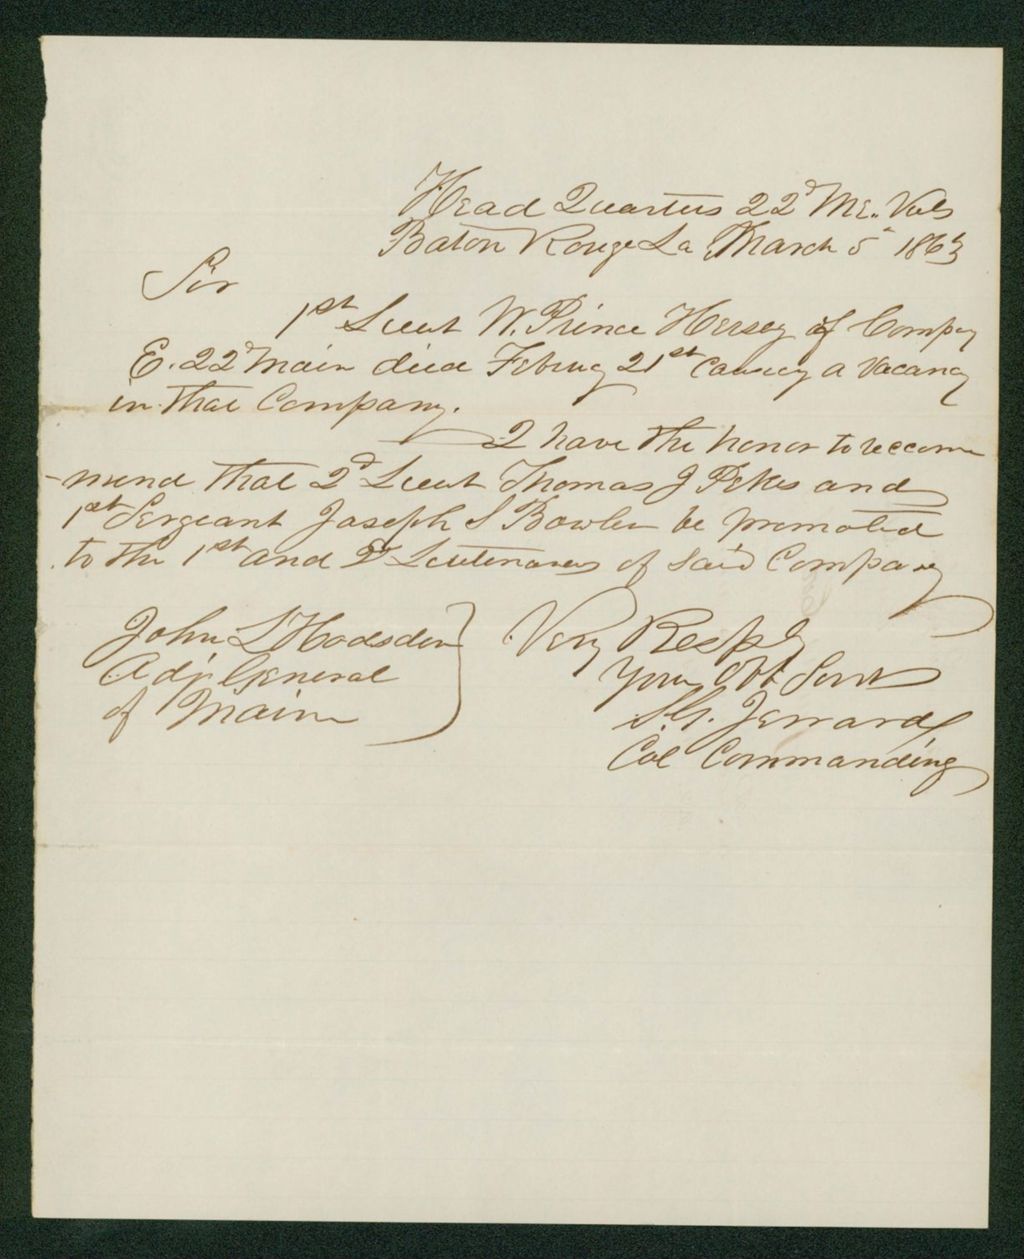 Head Quarters 22d Me. Vols
Baton Rouge La March 5" 1863
Sir
1st Lieut W. Prince Hersey of Compy
E. 22d Main died Februy 21st causing a vacancy
in that Company.
I have the honor to recom
-mend that 2d Lieut Thomas J Pikes and
1st Sergeant Joseph S Bowler be promoted
to the 1st and 2d Lieutenancs of said Company
John L Hodsdon
Adjt General
of Main
Very Respfy
Your Obt Servt
S.G. Jerrard
Col Commanding